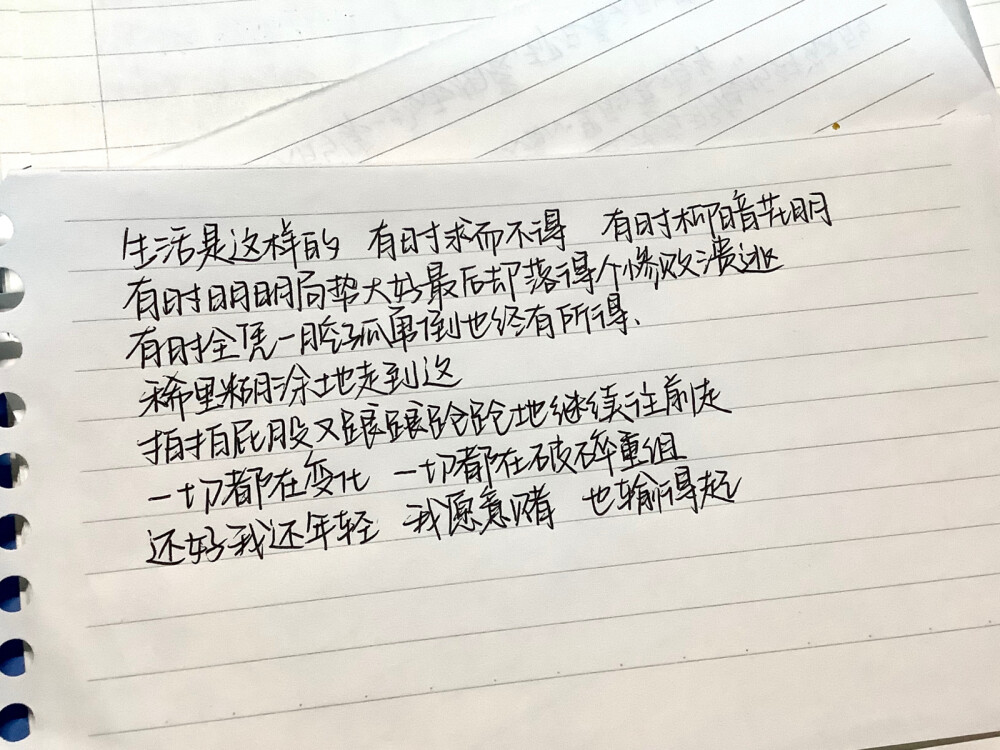 生活是这样的 有时求而不得 有时柳暗花明
有时明明局势大好最后却落得个惨败溃逃
有时全凭一腔孤勇倒也终有所得、
稀里糊涂地走到这
拍拍屁股又踉踉跄跄地继续往前走
一切都在变化 一切都在破碎重组
还好我还年轻 我愿意赌 也输得起